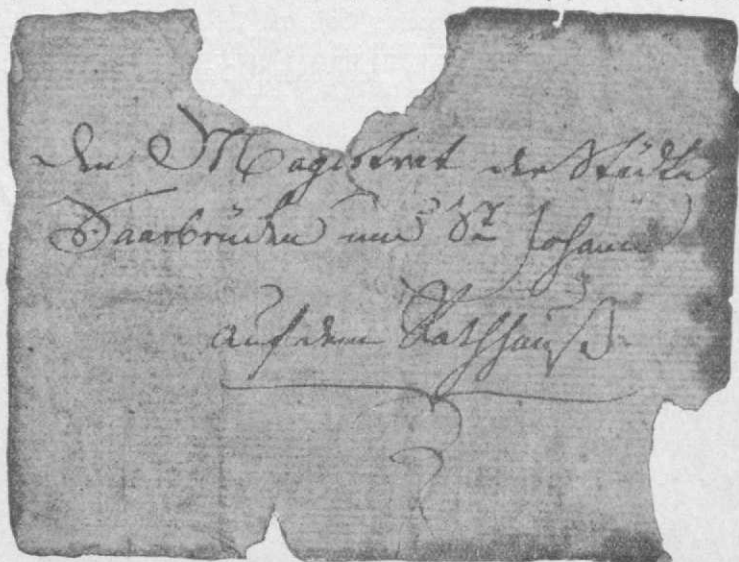 Den Magistrat der Städte
Saarbrücken und St Johann
auf dem Rathhauß